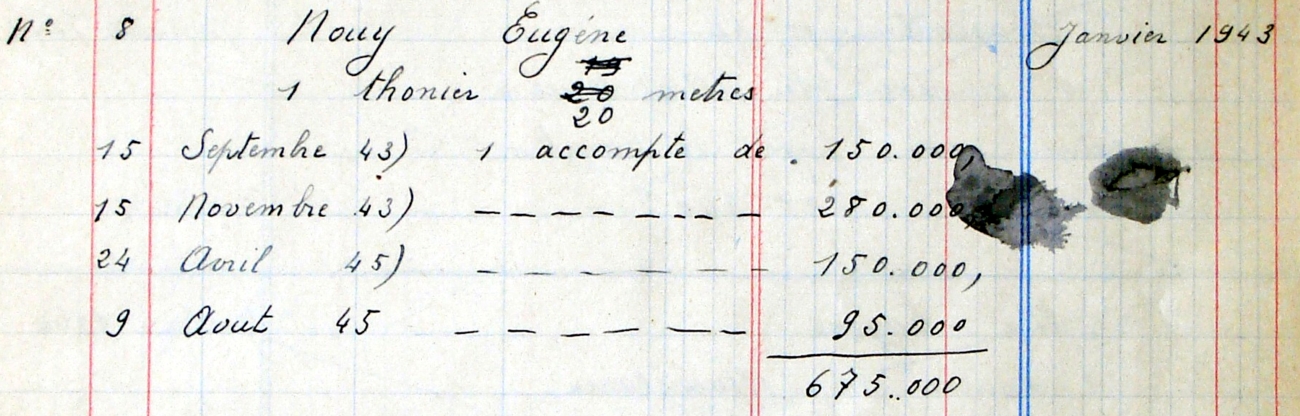 N° 8 Nouy Eugéne Janvier 1943
19
1 thonier 20 metres
20
15 Septembre 43) 1 accompte de 150.000,
15 Novembre 43) - - - - - - - 280.000,
24 Avril 45) - - - - - - 150.000,
9 Aout 45 - - - - - - 95.000
675.000